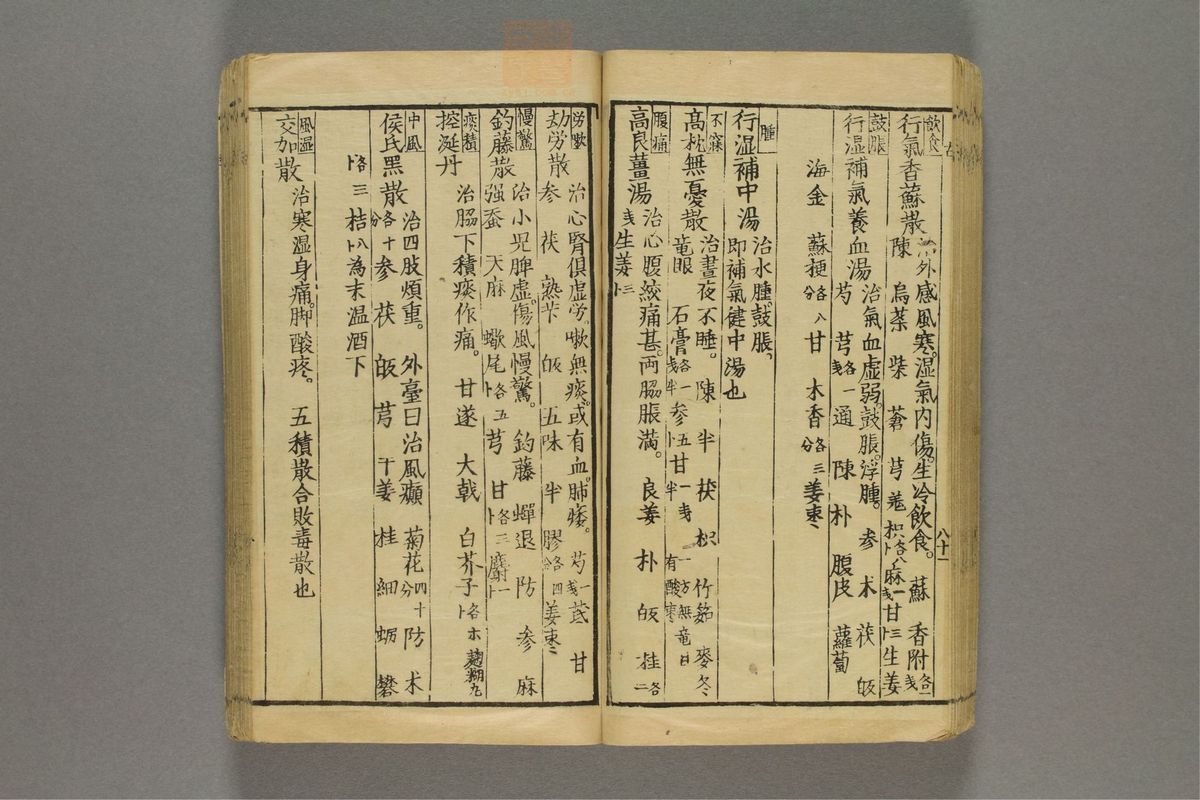 飲食
行氣香蘇散
治外感風寒。湿氣内傷。生冷飲食。 蘇 香附 各一戔
陳 烏薬 柴 蒼 芎 羗 枳 各八卜 麻 一戔 甘 三卜 生姜
鼓脹
行湿補氣養血湯
治氣血虚弱。鼓脹。浮腫。 参 术 茯 皈
芍 芎 各一戔 通 陳 朴 腹皮 蘿蔔
海金 蘇梗 各八分 甘 木香 各三分 姜枣
腫
行湿補中湯
治水腫。鼓脹、
即補氣健中湯也
不寐
高枕無憂散
治晝夜不睡。 陳 半 茯 枳 竹茹 麥冬
竜眼 石膏 各一戔半 参 五卜 甘 一戔半 一方無竜目有酸枣
腹痛
高良薑湯
治心腹絞痛甚。両脇脹満。 良姜 朴 皈 桂 各二
戔 生姜 三卜
八十一
労嗽
劫労散
治心腎倶虚。労嗽無痰。或有血。肺痿。 芍 一戔 芪 甘
参 茯 熟芐 皈 五味 半 膠 各四分 姜枣
慢驚
釣藤散
治小児脾虚。傷風慢驚。 釣藤 蟬退 防 参 麻
强蚕 天麻 蠍尾 各五卜 芎 甘 各三卜 麝 一卜
痰積
控涎丹
治脇下積痰作痛。 甘遂 大戟 白芥子 各木卜 麹糊丸
中風
侯氏黒散
治四肢煩重。 外臺曰治風癲 菊花 四十分 防 术
各十分 参 茯 皈 芎 干姜 桂 細 蛎 礬
各三卜 桔 八卜 為末温酒下
風湿
交加散
治寒湿身痛。脚酸疼。 五積散合敗毒散也